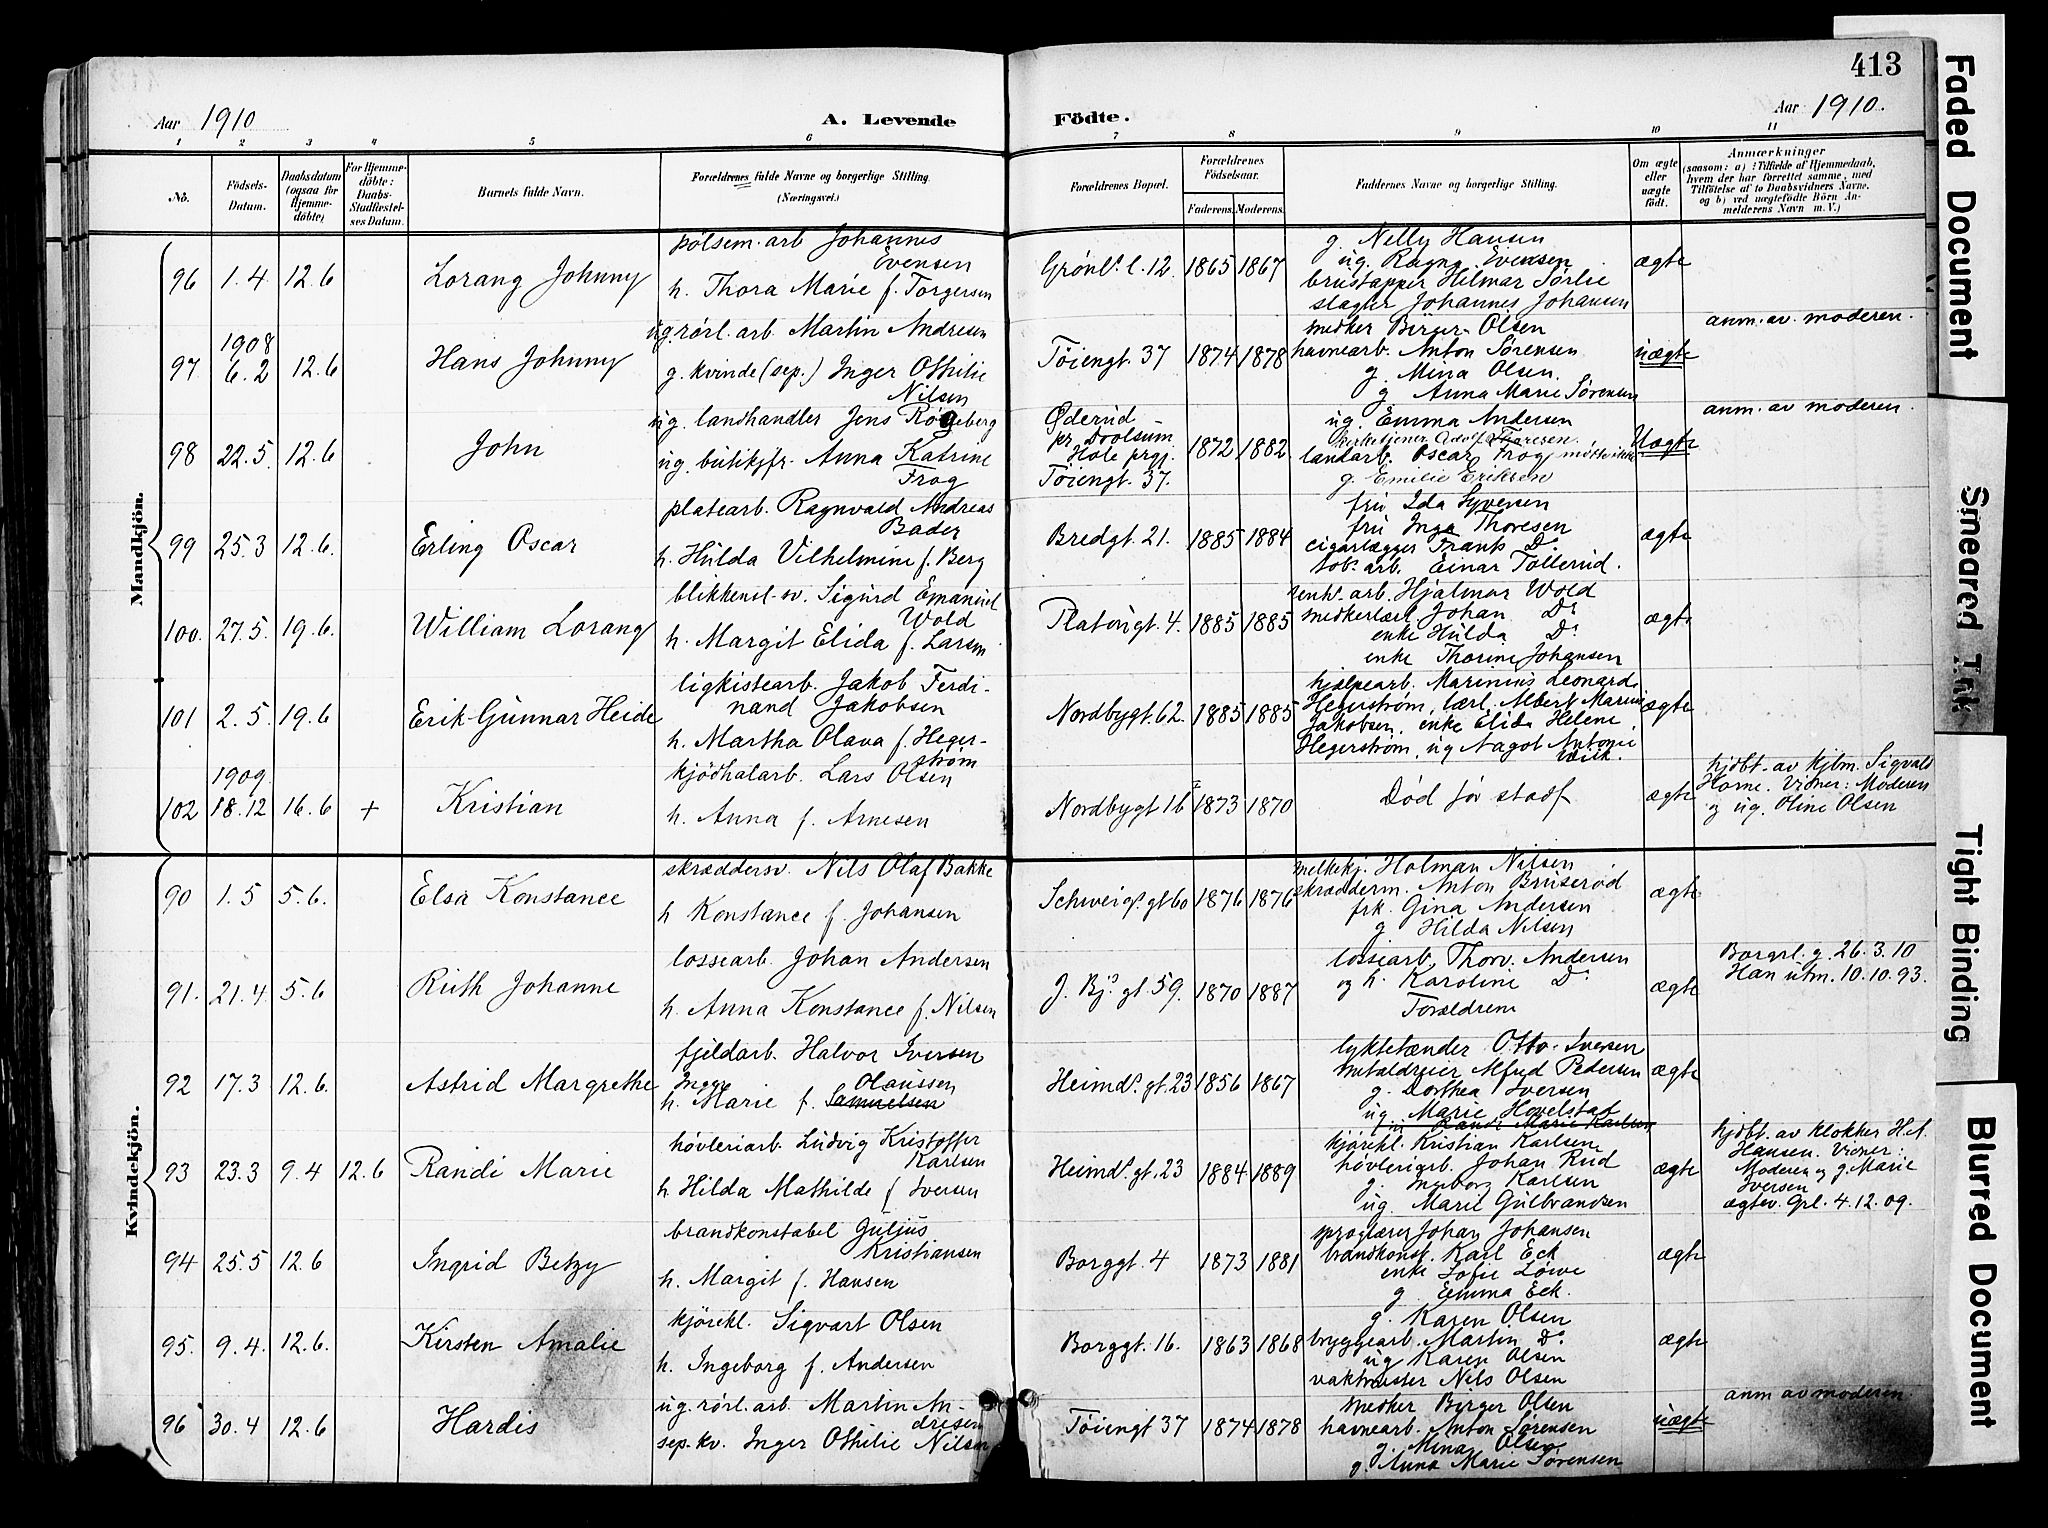 413
Aar 1910
A. Levende Födte.
Aar 1910.
1 2 3 4 5 6 7 8 9 10 11
No.
Födsels-Datum.
Daabsdatum (ogsaa for Hjemme-döbte)
For Hjemme-döbte: Daabs-Stadfæstel-ses Datum.
Barnets fulde Navn.
Forældrenes fulde Navne og borgerlige Stilling.
(Næringsvei.)
Forældrenes Bopæl.
Forældrenes Födselsaar.
Faderens. Moderens.
Faddernes Navne og borgerlige Stilling.
Om ægte eller uægte födt.
Anmærkninger
(saasom: a) i Tilfælde af Hjemmedaab, hvem der har forrettet samme, med Tilföielse af to Daabsvidners Navne. og b) ved uægtefödte Börn An-melderens Navn m. V.)
Mandkjön.
96 1.4 12.6 Lorang Johnny
pølsem. arb Johannes
Evensen
h. Thora Marie f. Torgersen
Grønl. l. 12. 1865 1867
g. Nelly Hansen
ug. Ragna Evensen
brustapper Hilmar Sørlie
slagter Johannes Johansen
ægte
97 1908 6.2 12.6 Hans Johnny
ug. rørl. arb. Martin Andresen
g. kvinde (sep.) Inger Othilie
Nilsen
Töiengt. 37 1874 1878
snedker Birger Olsen
havnearb. Anton Sørensen
g. Mina Olsen.
g Anna Marie Sørensen
uægte
anm. av moderen.
98 22.5. 12.6. John
ug. landhandler Jens Røgeberg
ug. butikjfr. Anna Katrine
Frog
Øderud
Hole prgj.
Töiengt. 37. 1872 1882
ug. Emma Andersen
kirketjener Adolf Thoresen.
landarb. Oscar Frog, mötte ikke
g. Emilie Eriksen
Uægte
anm. av moderen.
99 25.3 12.6. Erling Oscar
platearb. Ragnvald Andreas
Bader
h. Hulda Vilhelmine f. Berg
Bredgt. 21. 1885 1884
fru Ida Syversen
fru Inga Thoresen
cigarlægger Frants Do
tob. arb. Einar Tollerud.
ægte
100. 27.5. 19.6. William Lorang
blikkensl. sv. Sigurd Emanuel
Wold
h. Margit Elida f. Larsen
Platougt. 4. 1885 1885
renh. arb. Hjalmar Wold
snedkerlærl. Johan Do
enke Hulda Do
enke Thorine Johansen
ægte
101 2.5. 19.6 Erik Gunnar Heide
ligkistearb. Jakob Ferdi-
nand Jakobsen
h. Martha Olava f. Heger-
strøm
Nordbygt. 62. 1885 1885
hjælpearb. Marinius Leonard
Hegerstrøm, lærl. Albert Marius
Jakobsen, enke Elida Helene
Hegerstrøm, ug Aagot Antonie
ægte
102 1909. 18.12 16.6 + Kristian
kjødhalarb. Lars Olsen
h. Anna f. Arnesen
Nordbygt 16 1873 1870
Död før stadf
ægte
hjdbt. av kjbm. Sigvald
Horne. Vidner: Moderen
og ug. Oline Olsen
Kvindekjön.
90 1.5 5.6. Elsa Konstance
skræddersv. Nils Olaf Bakke
h Konstance f. Johansen
Schweigs. gt 60 1876 1876
melkekj. Holman Nilsen
skrædderm. Anton Bruserød
frk. Gina Andersen
g Hilda Nilsen
ægte
91. 21.4. 5.6 Ruth Johanne
lossearb. Johan Andersen
h. Anna Konstance f. Nilsen
J. Bj. gt. 59. 1870 1887
lossearb. Thorv. Andersen
og h. Karoline Do
Forældrene
ægte
Borgerl. g. 26.3.10
Han utm. 10.10.93.
92 17.3 12.6. Astrid Margrethe
fjeldarb. Halvor Iversen
Inger Olaussen
h. Marie f. Samuelsen
Heimd. gt. 23 1856 1867
lyktetænder Otto Iversen
metaldreier Alfred Pedersen
g. Dorthea Iversen
ug. Marie Hovelstad
ægte
93 23.3 9.4 12.6 Randi Marie
høvleriarb. Ludvig Kristoffer
Karlsen
h. Hilda Mathilde f Iversen
Heimd. gt. 23 1884 1889
kjørekl. Kristian Karlsen
høvleriarb. Johan Rud
g. Ingeborg Karlsen
ug. Marie Gulbrandsen
ægte
hjdbt. av klokker H.A.
Hansen. Vidner:
Moderen og g. Marie
Iversen
ægtev. Gpl. 4.12.09.
94 25.5 12.6 Ingrid Betzy
brandkonstabel Guljus
Kristiansen
h. Margit f. Hansen
Borggt. 4 1873 1881
sproglærer Johan Johansen
brandkonst. Karl Eck
enke Sofie Löwe
g. Emma Eck.
ægte
95. 9.4. 12.6. Kirsten Amalie
kjørekl. Sigvart Olsen
h. Ingeborg f. Andersen
Borggt. 16. 1863 1868
g. Karen Olsen
bryggearb. Martin Do
ug Karen Olsen
vaktmester Nils Olsen
ægte
96 30.4 12.6 Hardis
ug. rørl. arb. Martin An-
dresen
sep. kv. Inger Othilie Nilsen
Töiengt 37 1874 1878
snedker Birger Olsen
havnearb. Anton Sørensen
g. Mina Olsen
g. Anna Marie Sørensen
uægte
anm av moderen
Faded Document
Smeared Ink
Tight Binding
Blurred Document